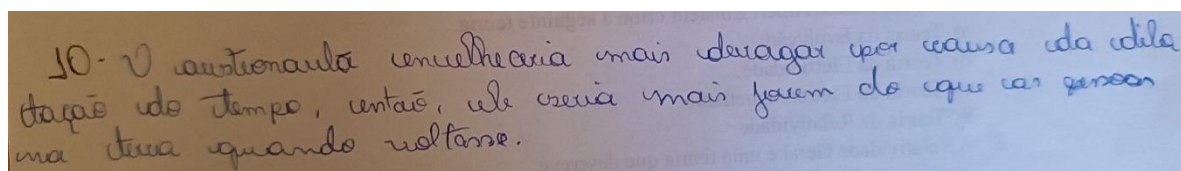 10- O austronauta envelheceria mais devagar por causa da dila
tação do tempo, então, ele seria mais jovem do que as pessoas
na terra quando voltasse.